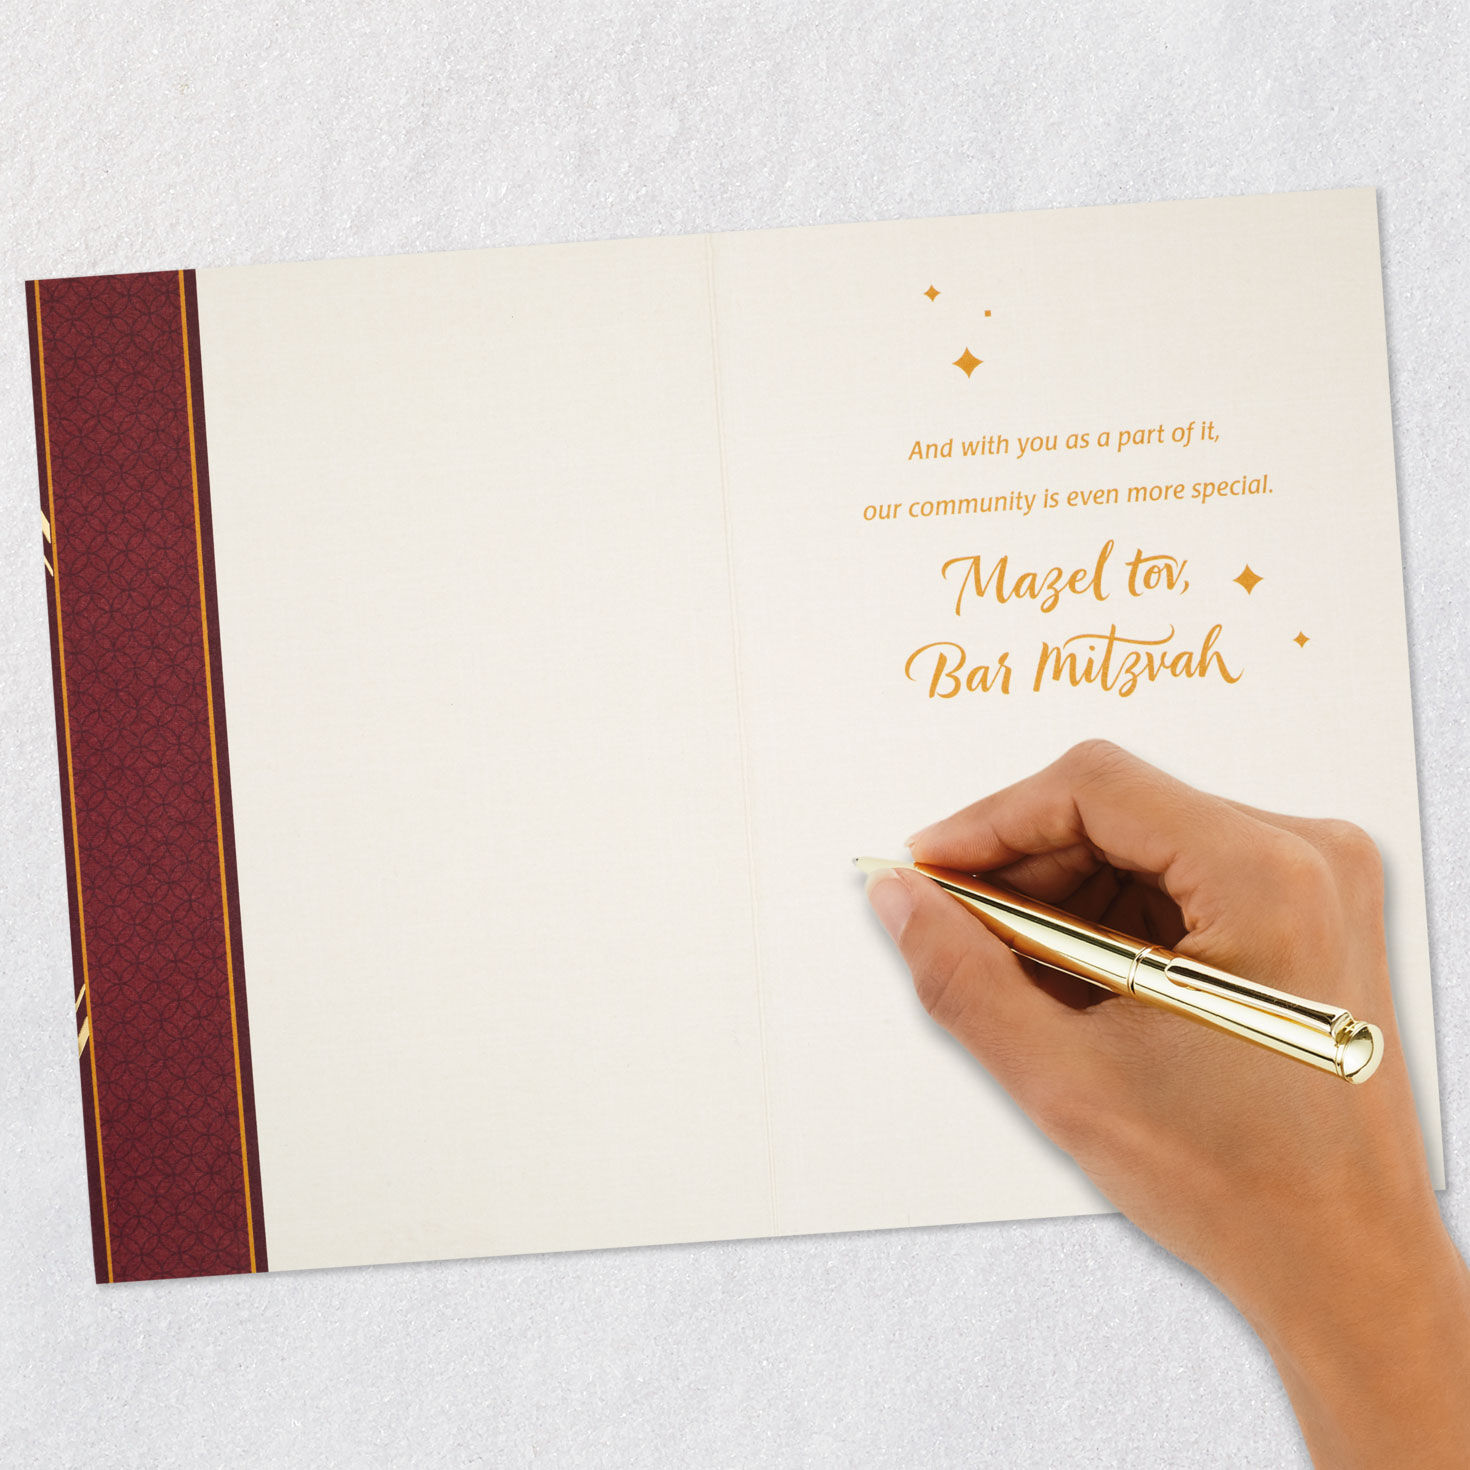 And with you as a part of it,
our community is even more special.
Mazel tov,
Bar Mitzvah